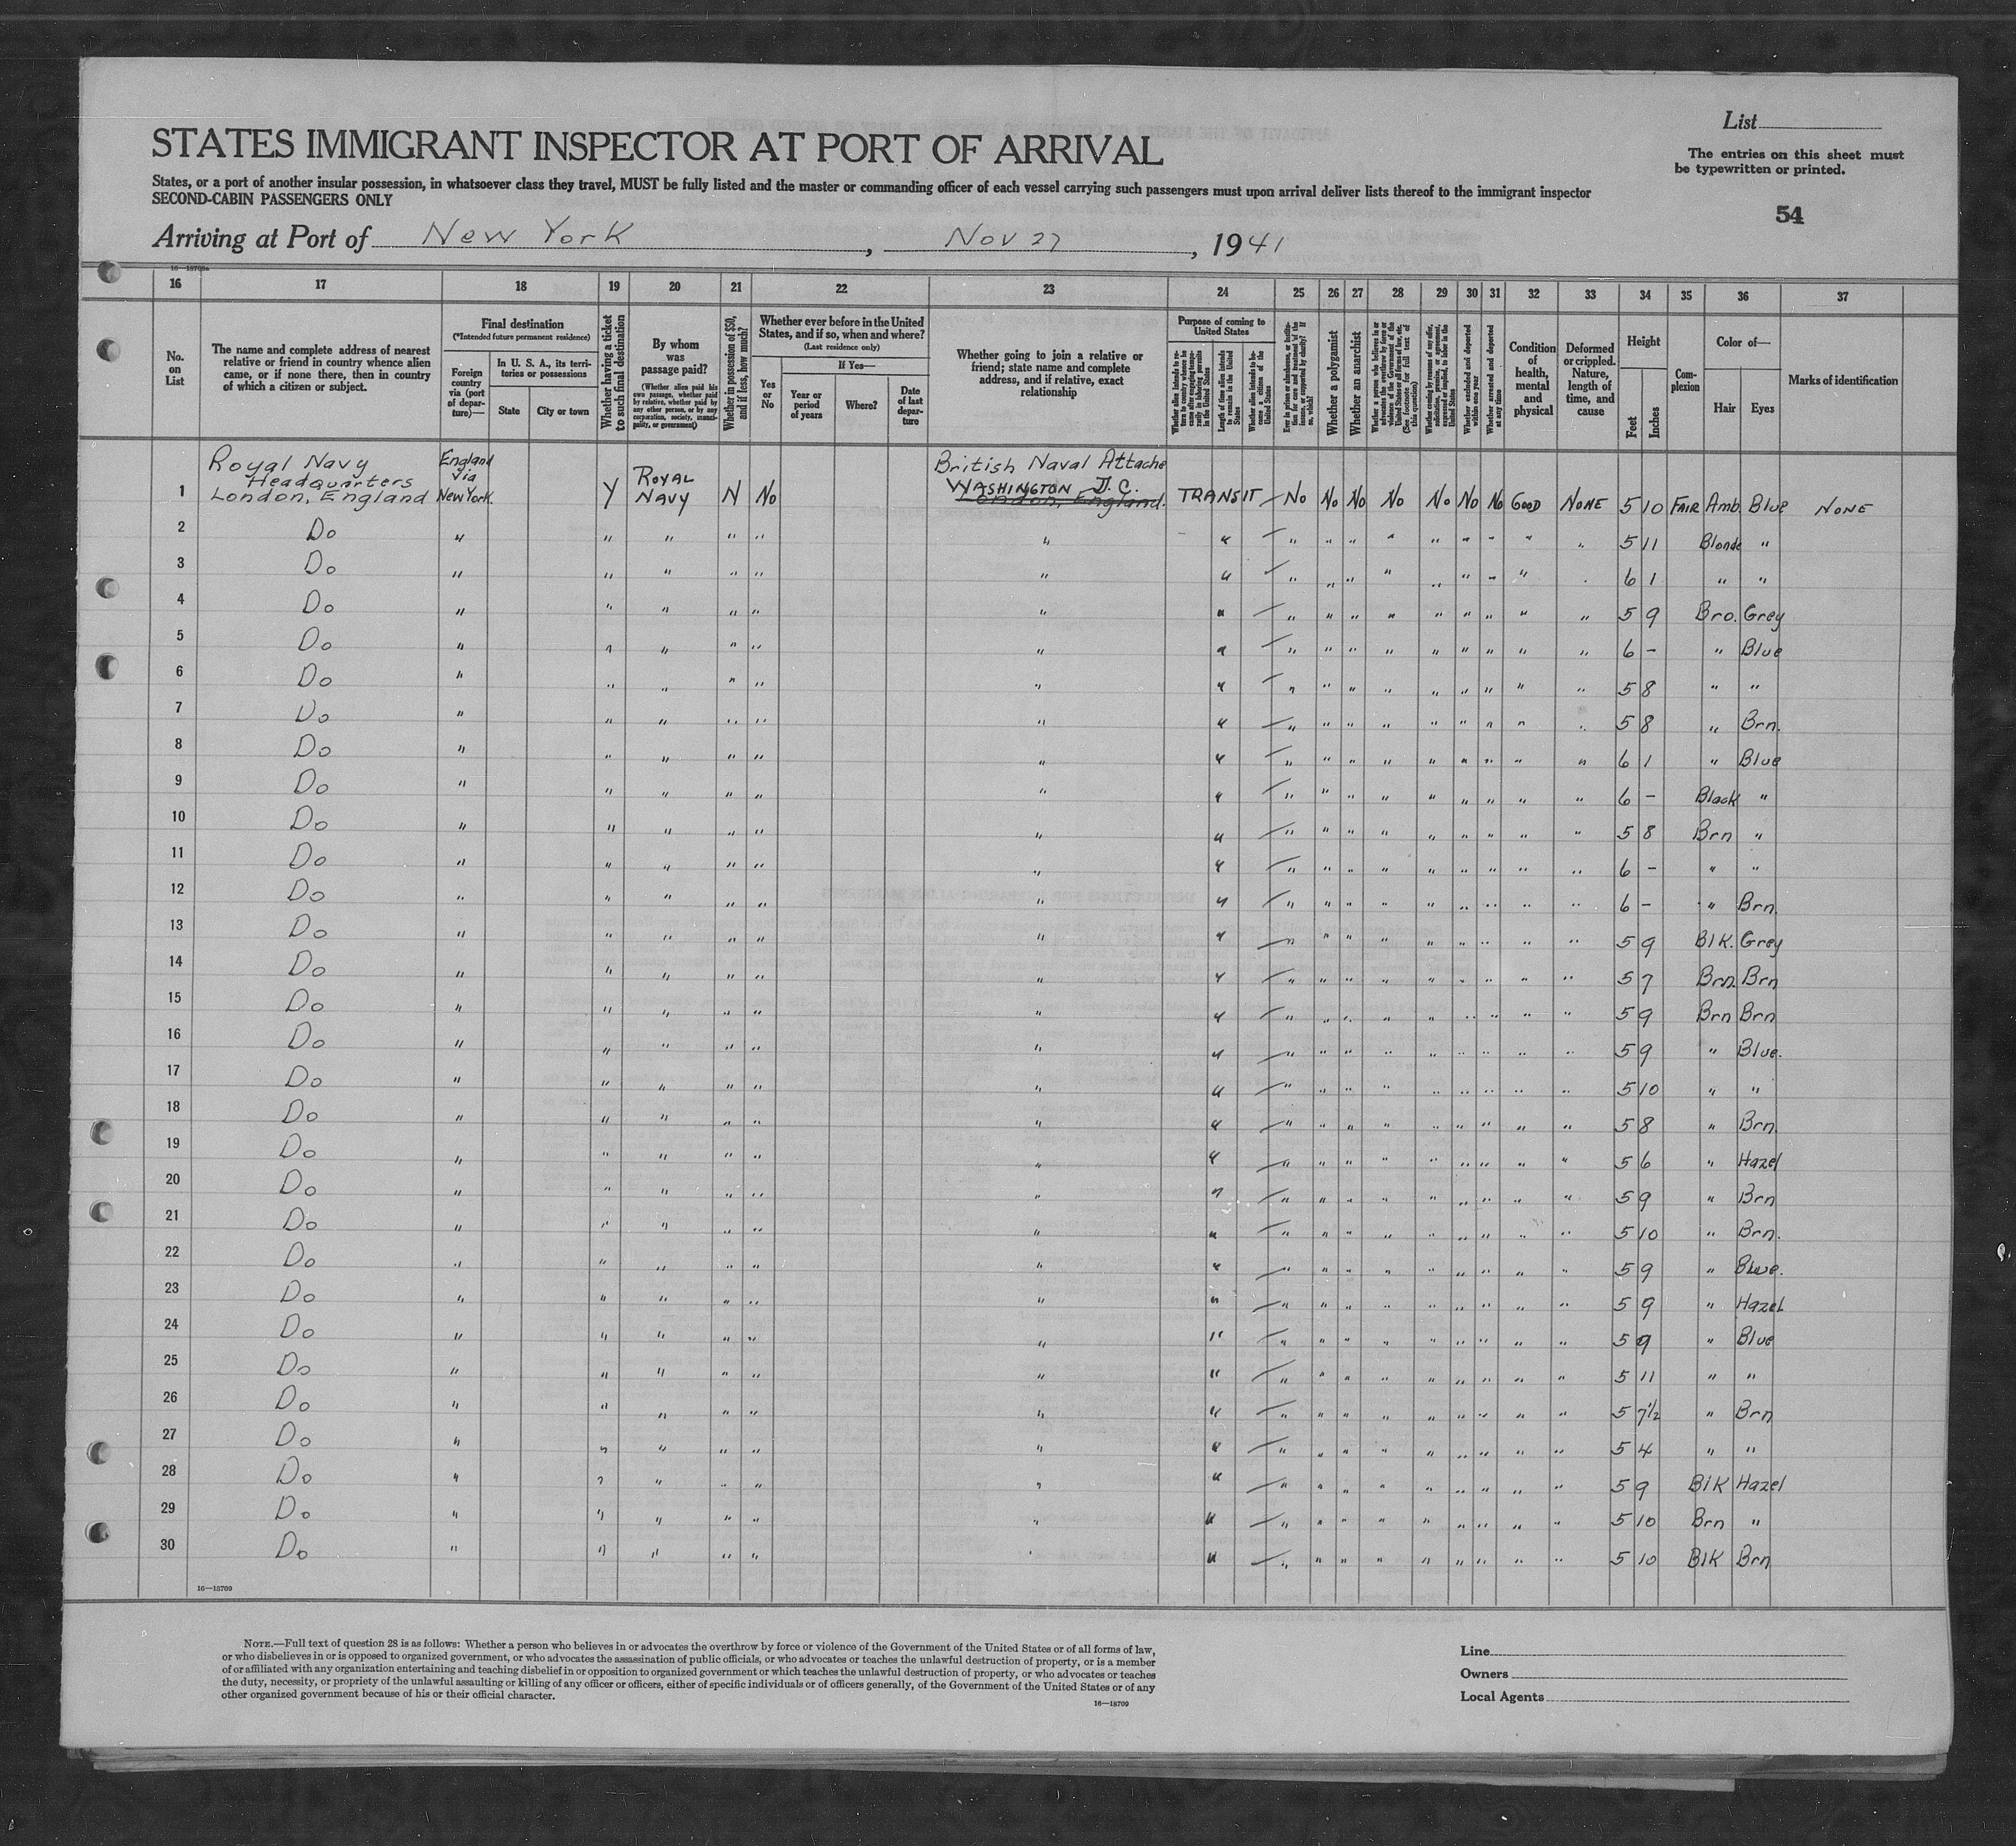 STATES IMMIGRANT INSPECTOR AT PORT OF ARRIVAL
List
The entries on this sheet must
be typewritten or printed.
States, or a port of another insular possession, in whatsoever class they travel, MUST be fully listed and the master or commanding officer of each vessel carrying such passengers must upon arrival deliver lists thereof to the immigrant inspector
SECOND-CABIN PASSENGERS ONLY
54
Arriving at Port of New York, Nov 27, 1941
16 17 18 19 20 21 22 23 24 25 26 27 28 29 30 31 32 33 34 35 36 37
No. on List
The name and complete address of nearest relative or friend in country whence alien came, or if none there, then in country of which a citizen or subject.
Final destination
(*Intended future permanent residence)
Foreign country via (port of departure)—
In U. S. A., its territories or possessions
State
City or town
Whether having a ticket to such final destination
By whom was passage paid?
(Whether alien paid his own passage, whether paid by relative, whether paid by any other person, or by any corporation, society, municipality, or government)
Whether in possession of $50, and if less, how much?
Whether ever before in the United States, and if so, when and where?
(Last residence only)
Yes or No
If Yes—
Year or period of years
Where?
Date of last departure
Whether going to join a relative or friend; state name and complete address, and if relative, exact relationship
Purpose of coming to United States
Length of time alien intends to remain in the United States
Whether alien intends to become a citizen of the United States
Whether a polygamist
Whether an anarchist
Whether excluded and deported within one year
Whether arrested and deported at any time
Condition of health, mental and physical
Deformed or crippled. Nature, length of time, and cause
Height
Feet
Inches
Complexion
Color of—
Hair
Eyes
Marks of identification
1 Royal Navy Headquarters London, England England via New York Y ROYAL NAVY N No British Naval Attache WASHINGTON D.C. London, England. TRANSIT No No No No No No No GOOD NONE 5 10 FAIR Amb. Blue NONE
2 Do " " " " " " " " " " " " " " " " 5 11 Blonde "
3 Do " " " " " " " " " " " " " " " 6 1 " "
4 Do " " " " " " " " " " " " " " " " 5 9 Bro. Grey
5 Do " " " " " " " " " " " " " " " " 6 - " Blue
6 Do " " " " " " " " " " " " " " " " 5 8 " "
7 Do " " " " " " " " " " " " " " " " 5 8 " Brn.
8 Do " " " " " " " " " " " " " " " " 6 1 " Blue
9 Do " " " " " " " " " " " " " " " " 6 - Black "
10 Do " " " " " " " " " " " " " " " " 5 8 Brn "
11 Do " " " " " " " " " " " " " " " " 6 - " "
12 Do " " " " " " " " " " " " " " " " 6 - " Brn.
13 Do " " " " " " " " " " " " " " " " 5 9 Blk. Grey
14 Do " " " " " " " " " " " " " " " " 5 7 Brn. Brn
15 Do " " " " " " " " " " " " " " " " 5 9 Brn Brn
16 Do " " " " " " " " " " " " " " " " 5 9 " Blue.
17 Do " " " " " " " " " " " " " " " " 5 10 " "
18 Do " " " " " " " " " " " " " " " " 5 8 " Brn.
19 Do " " " " " " " " " " " " " " " " 5 6 " Hazel
20 Do " " " " " " " " " " " " " " " " 5 9 " Brn
21 Do " " " " " " " " " " " " " " " " 5 10 " Brn.
22 Do " " " " " " " " " " " " " " " " 5 9 " Blue.
23 Do " " " " " " " " " " " " " " " " 5 9 " Hazel
24 Do " " " " " " " " " " " " " " " " 5 9 " Blue
25 Do " " " " " " " " " " " " " " " " 5 11 " "
26 Do " " " " " " " " " " " " " " " " 5 7½ " Brn
27 Do " " " " " " " " " " " " " " " " 5 4 " "
28 Do " " " " " " " " " " " " " " " " 5 9 Blk Hazel
29 Do " " " " " " " " " " " " " " " " 5 10 Brn "
30 Do " " " " " " " " " " " " " " " 5 10 Blk Brn
16—18709
NOTE.—Full text of question 28 is as follows: Whether a person who believes in or advocates the overthrow by force or violence of the Government of the United States or of all forms of law,
or who disbelieves in or is opposed to organized government, or who advocates the assassination of public officials, or who advocates or teaches the unlawful destruction of property, or is a member
of or affiliated with any organization entertaining and teaching disbelief in or opposition to organized government or which teaches the unlawful destruction of property, or who advocates or teaches
the duty, necessity, or propriety of the unlawful assaulting or killing of any officer or officers, either of specific individuals or of officers generally, of the Government of the United States or of any
other organized government because of his or their official character.
16—18709
Line
Owners
Local Agents